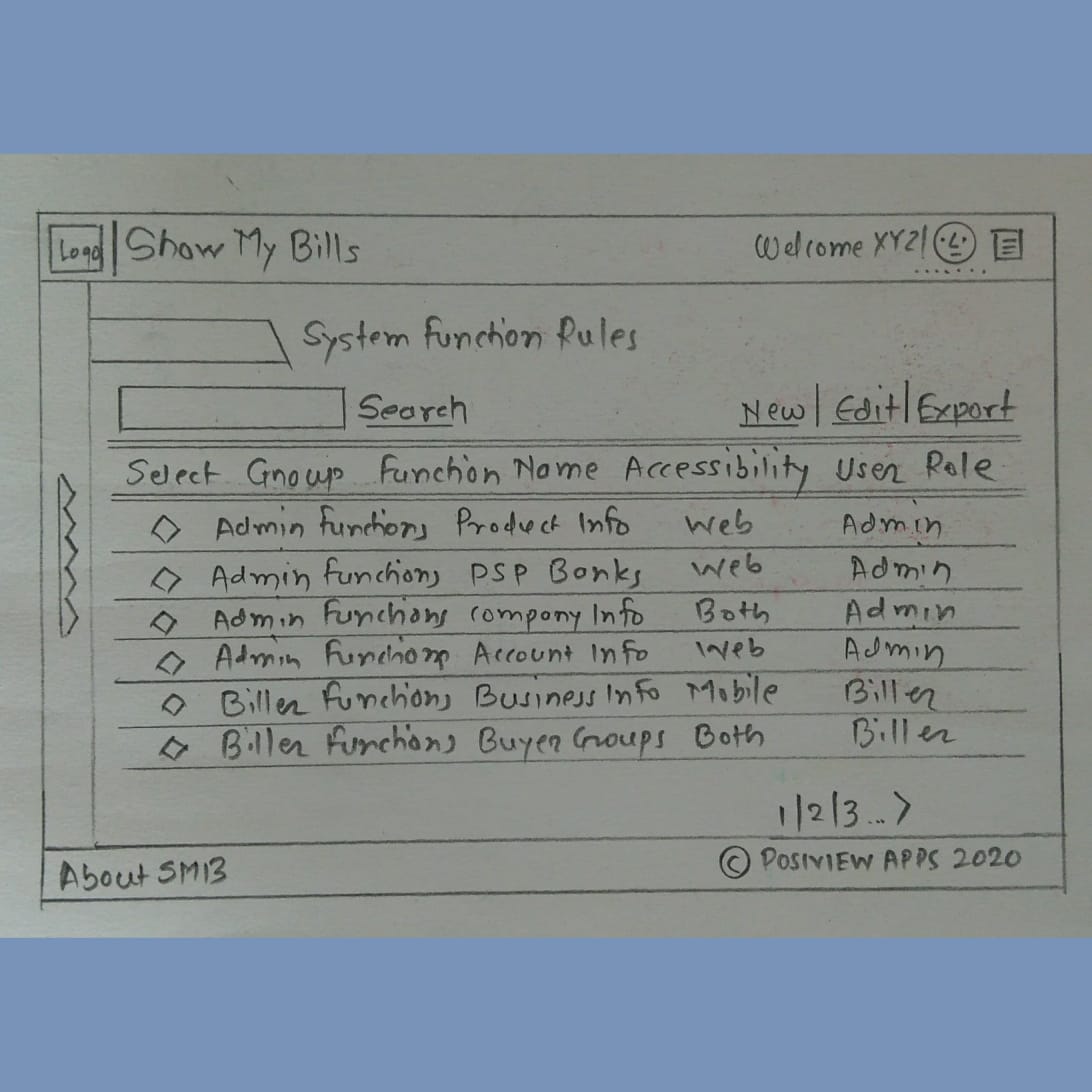 Logo Show My Bills Welcome XYZ
System Function Rules
Search New | Edit | Export
Select Group Function Name Accessibility User Role
Admin Functions Product Info Web Admin
Admin Functions PSP Banks Web Admin
Admin Functions Company Info Both Admin
Admin Functions Account Info Web Admin
Biller Functions Business Info Mobile Biller
Biller Functions Buyer Groups Both Biller
1|2|3...>
About SMB © POSIVIEW APPS 2020